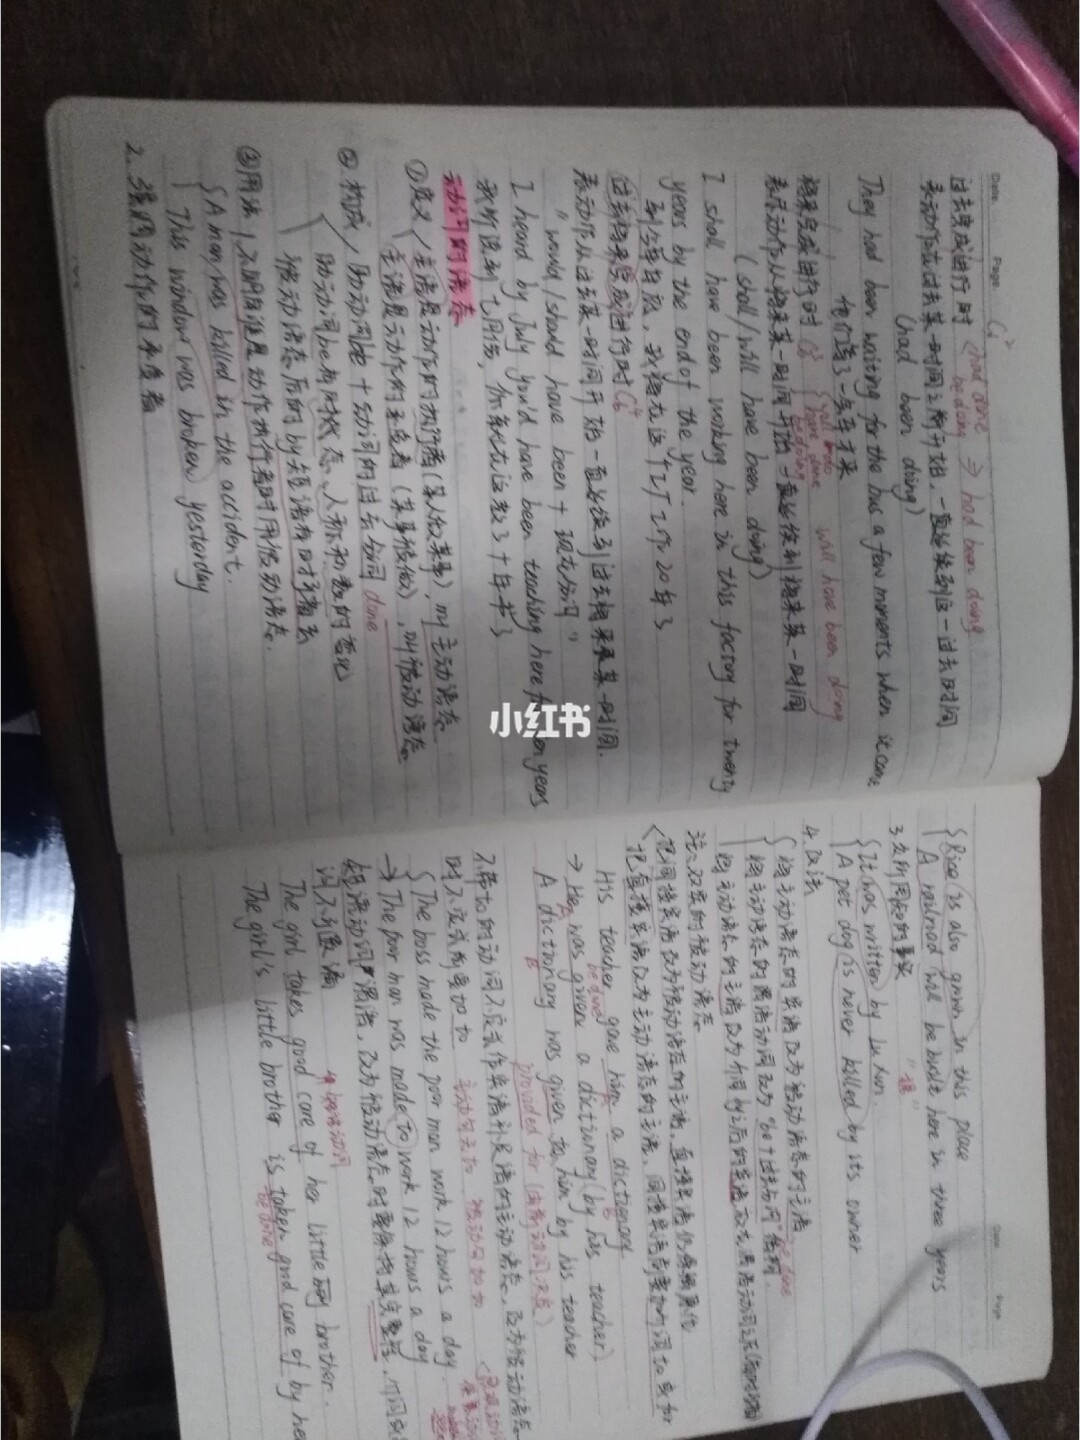 Date. Page.
过去完成进行时 (had done be doing ⇒ had been doing)
表动作在过去某一时间之前开始,一直延续到这一过去时间
(had been doing)
They had been waiting for the bus a few moments when it came
他们等了一会车才来
将来完成进行时 will have been doing
have done
be doing
表示动作从将来某一时间开始一直延续到将来某一时间
(shall/will have been doing)
I shall have been working here in this factory for twenty
years by the end of the year.
20年了
过去将来完成进行时
表动作从过去某一时间开始一直延续到过去将来某一时间.
"would/should have been + 现在分词"
I heard by July you'd have been teaching here for ten years
我听说到七月份,你就在这教了十年书了
动词的语态
①定义 主语是动作的执行者(某人做某事),叫主动语态.
主语是动作的承受者(某事被做),叫被动语态
②构成 助动词be + 动词的过去分词 done
助动词be有时态、人称和数的变化
被动语态后的by短语有时可省去
③用法 1.不明确谁是动作执行者时用被动语态.
A man was killed in the accident.
This window was broken yesterday
2.强调动作的承受者
Date. Page.
Rice is also grown in this place
A railroad will be built here in three years
It was written by Lu Xun.
A pet dog is never killed by its owner
4.
将主动语态的宾语改为被动语态的主语
将主动语态的谓语动词改为"be+过去分词"结构. be done
注:双宾的被动语态
His teacher gave him a dictionary
→ He was given a dictionary (by his teacher)
be done
A dictionary was given to him by his teacher
provided for
不带to的动词不定式作宾语补足语的主动语态,改为被动语态
时不定式前要加to
The boss made the poor man work 12 hours a day.
→ The poor man was made to work 12 hours a day
The girl takes good care of her little brother.
The girl's little brother is taken good care of by her
be done
小红书